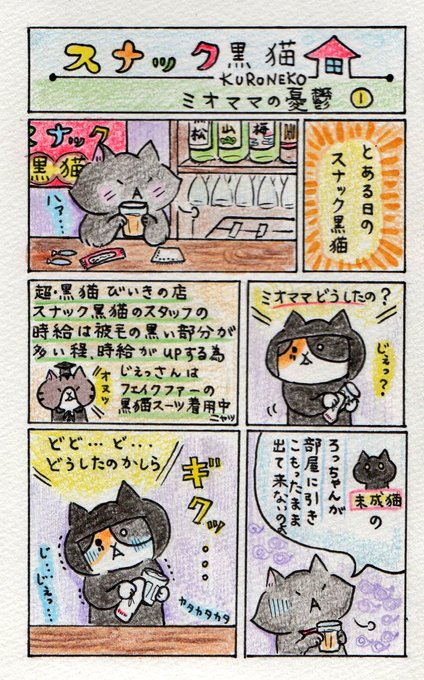 スナック黒猫
KURONEKO
ミオママの憂鬱 1
とある日の
スナック黒猫
スナック
黒猫
黒松
山
梅
ハァ…
ミオママどうしたの?
じぇっ?
超・黒猫びいきの店
スナック黒猫のスタッフの
時給は被毛の黒い部分が
多い程、時給がUPする為
じぇっさんは
フェイクファーの
黒猫スーツ着用中
ニャッ
オヌッ
未成猫の
ろっちゃんが
部屋に引き
こもったまま
出て来ないのよ
どど…ど…
どうしたのかしら
ギクッ…
じ…じぇっ…
カタカタカタ